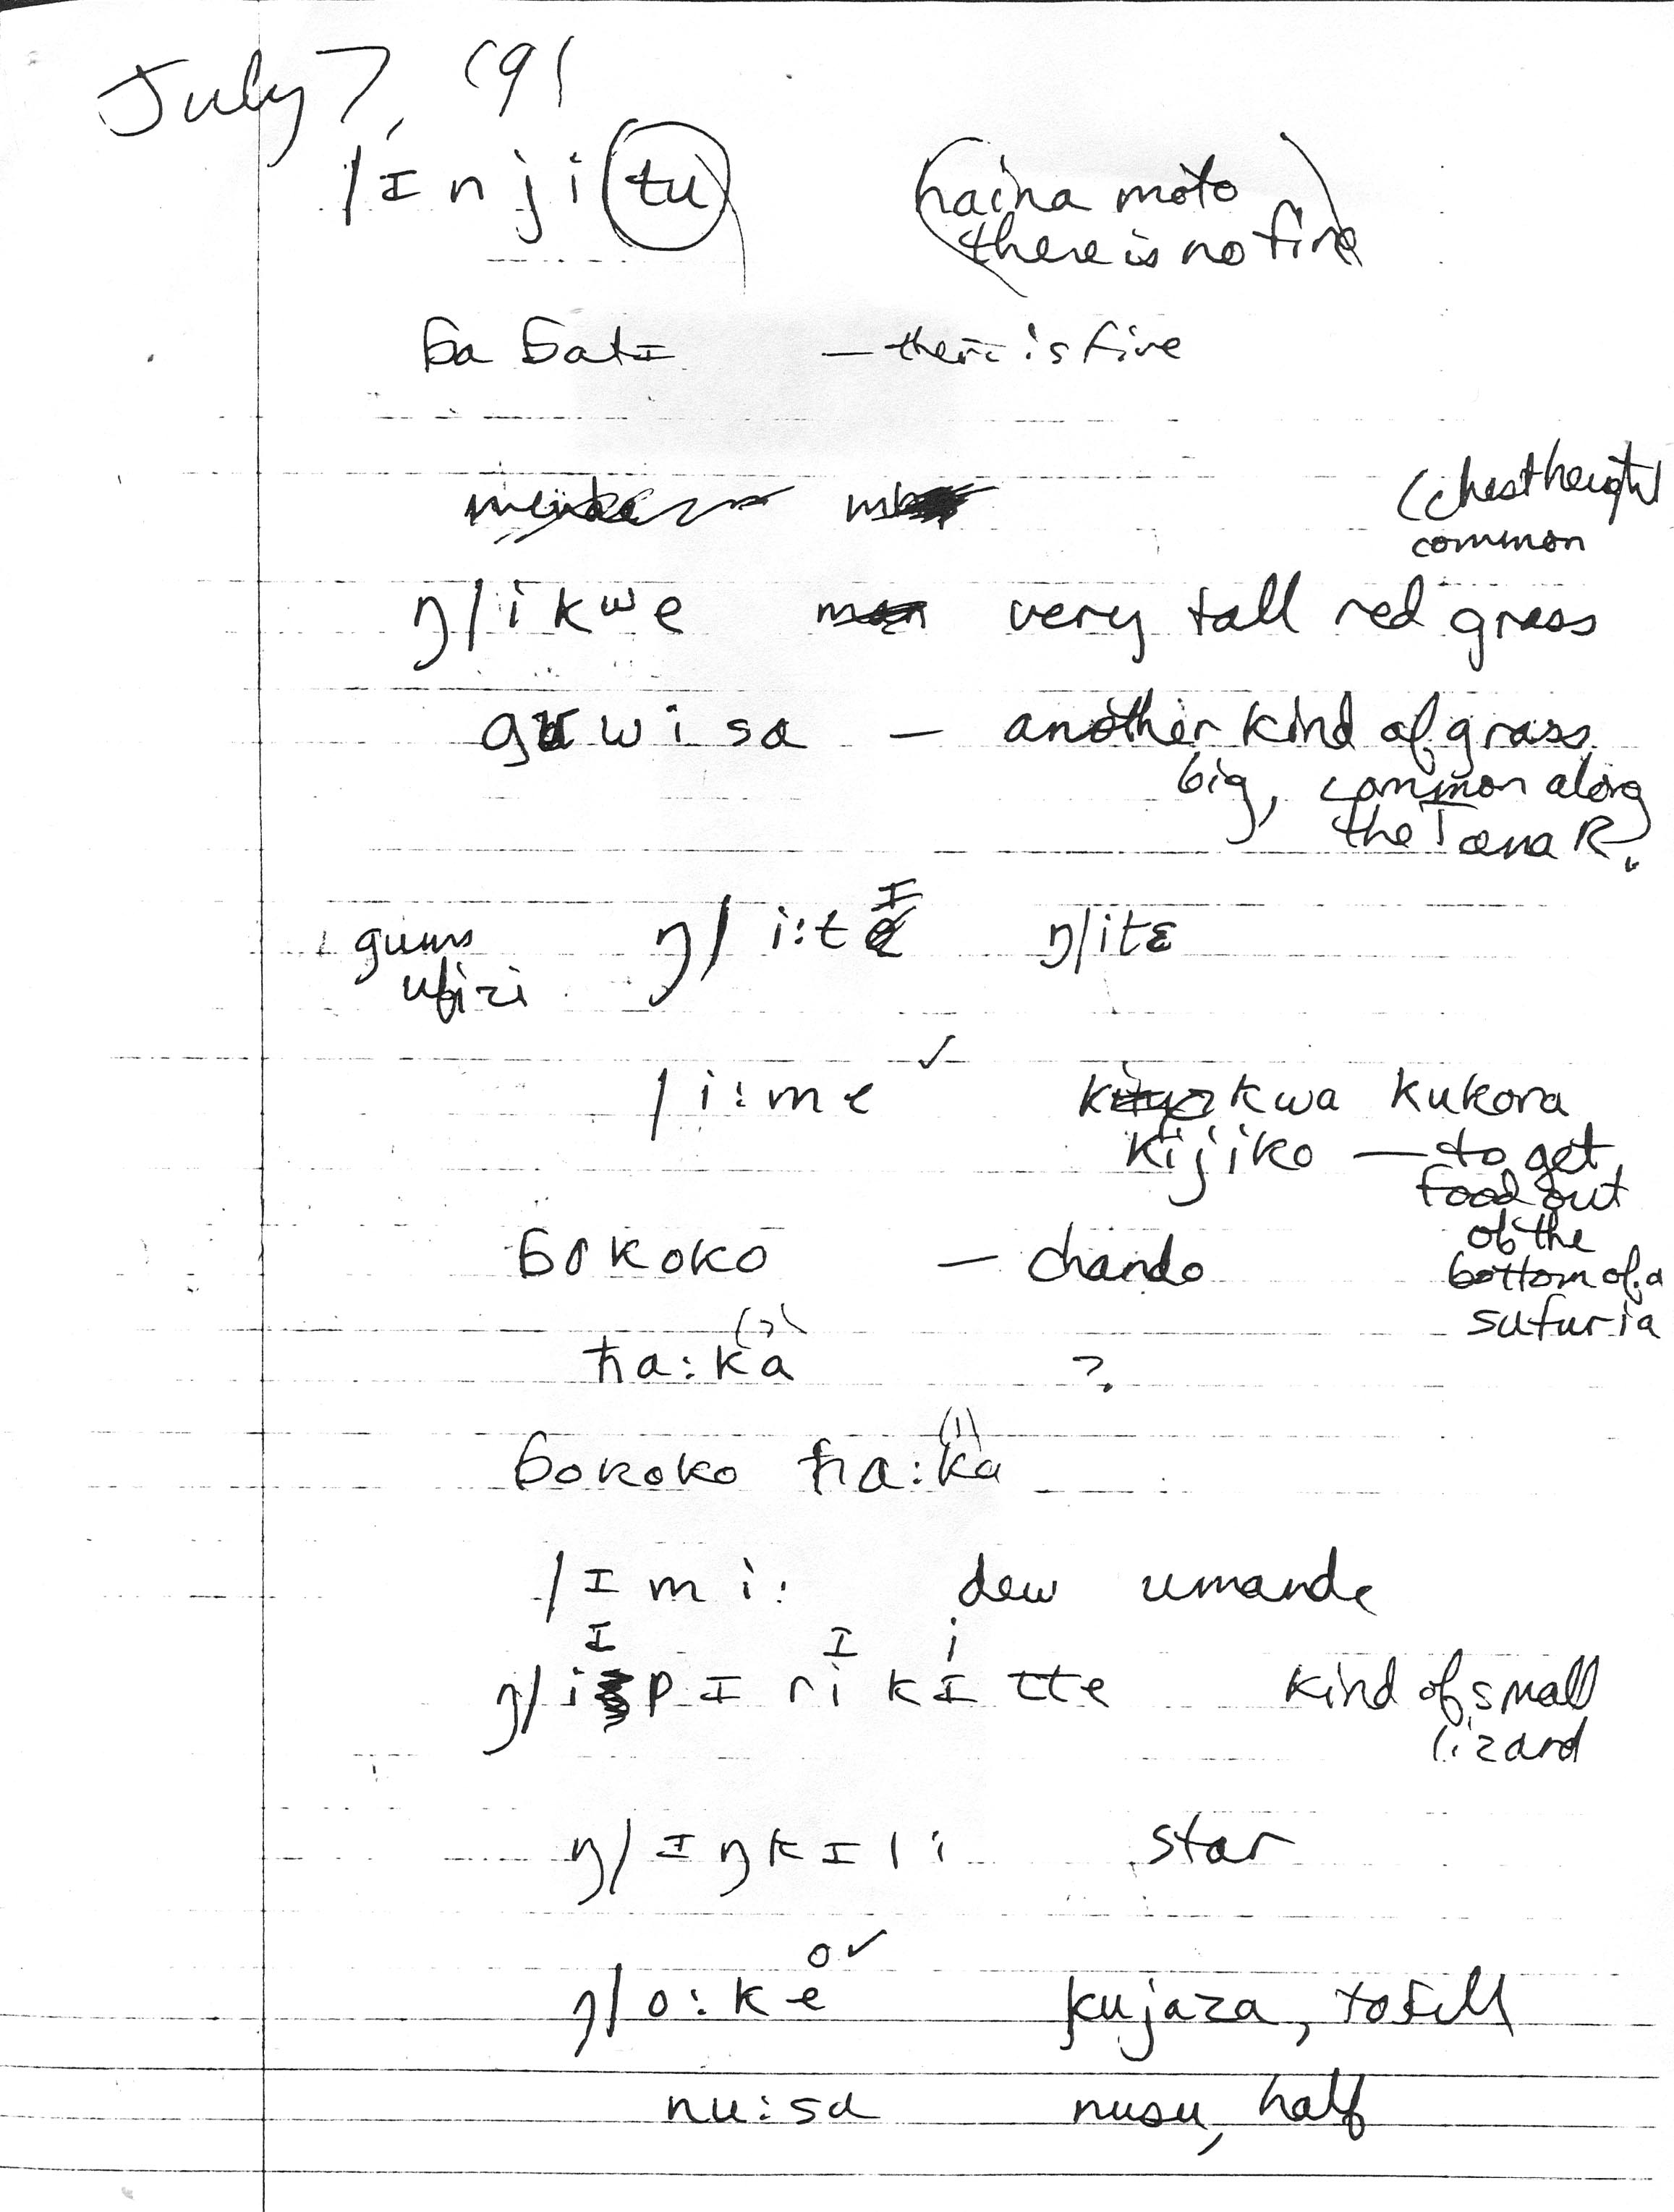 July 7, '91
/ɪnji(tu) (haina moto
there is no fire)
ɓa ɓatɪ – there is fire
(chest height
common
ŋ/ikʷe very tall red grass
guwisa – another kind of grass
big, common along
the Tana R.
gums ŋ/i:tɪ ŋ/itɛ
ufizi
/i:me ✓ kwa kukora
kijiko — to get
food out
of the
bottom of a
sufuria
ɓokoko – chando
(2)
ħa:ka ?
(1)
ɓokoko ħa:ka
/ɪmi: dew umande
ɪ ɪ i
ŋ/ipɪrikɪtte kind of small
lizard
ŋ/ɪŋkɪli star
o ✓
ŋ/o:ke kujaza, to fill
nu:sa nusu, half